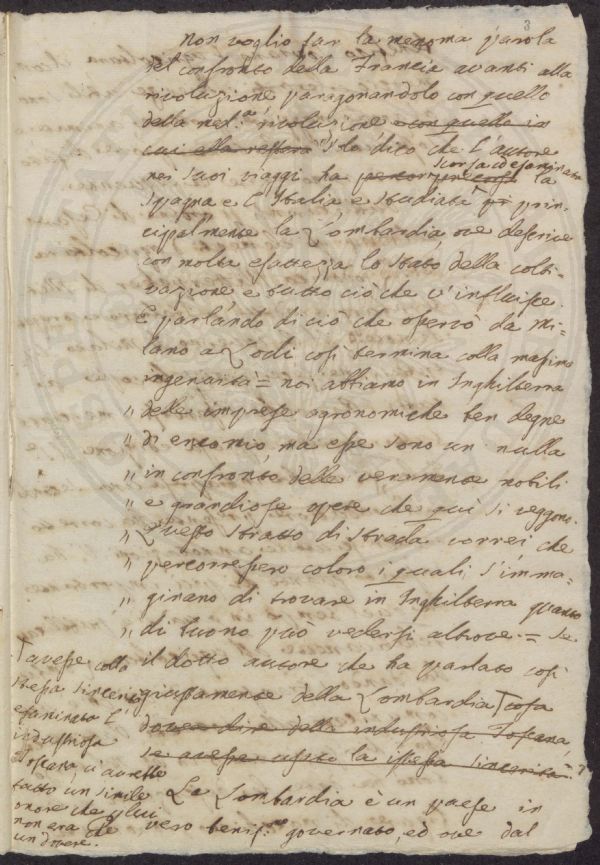 3
Non voglio far la menoma parola
nel confronto della Francia avanti alla
rivoluzione paragonandolo con quello
della med.ª rivoluzione e con quella in
cui ella restera. Solo dico che l'autore
scorsa ed esaminata
nei suoi viaggi ha la
Spagna e l'Italia e studiata prin-
cipalmente la Lombardia ove descrive
con molta esattezza lo stato della colti-
vazione e tutto ciò che v'influisce.
E parlando di ciò che osservò da Mi-
lano a Lodi così termina colla massima
ingenuità = noi abbiamo in Inghilterra
„ delle imprese agronomiche ben degne
„ di encomio, ma esse sono un nulla
„ in confronto delle veramente nobili
„ e grandiose opere che qui si veggono.
„ Questo tratto di strada vorrei che
„ percorressero coloro i quali s'imma-
„ ginano di trovare in Inghilterra quanto
„ di buono può vedersi altrove = Se
il dotto autore che ha parlato così
giustamente della Lombardia cosa
dovea dire della industriosa Toscana,
se avesse usato la stessa sincerità
avesse colla
stessa sincerità
esaminato l'
industriosa
Toscana, ci avrebbe
fatto un simile
onore che a lui
non era che
un dovere.
La Lombardia è un paese in
vero benis.mo governato, ed ove dal